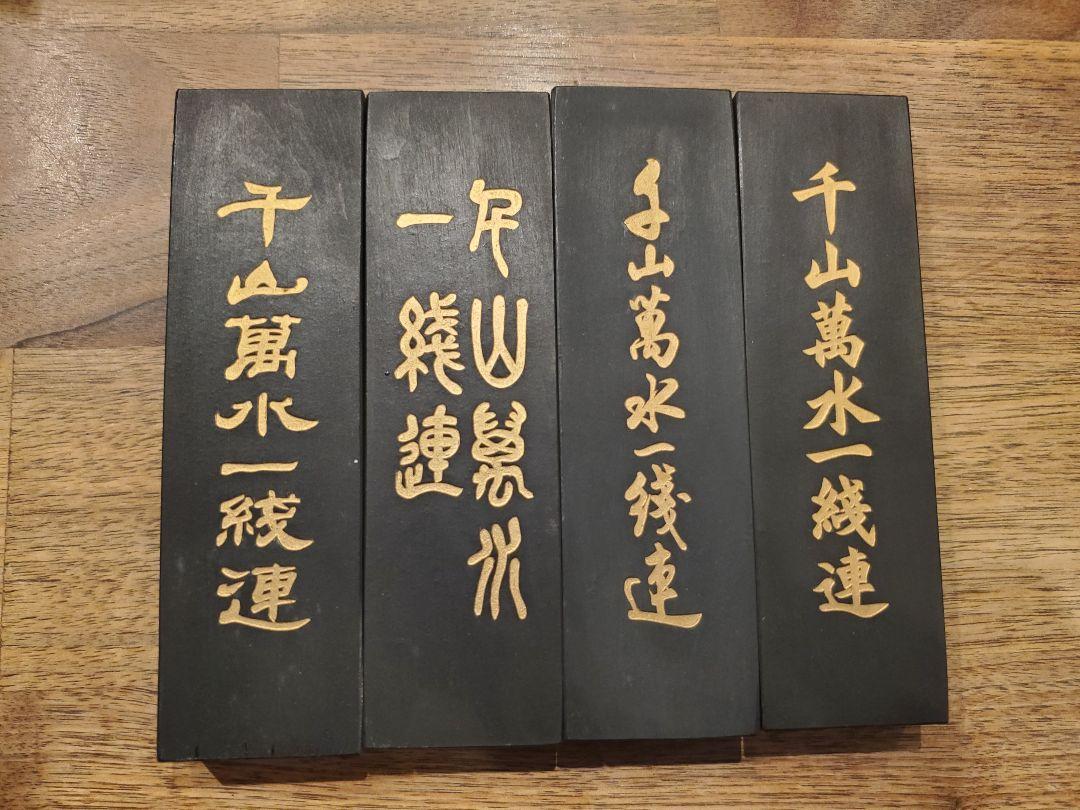 千山萬水一綫連
千山萬水
一綫連
千山萬水一綫連
千山萬水一綫連